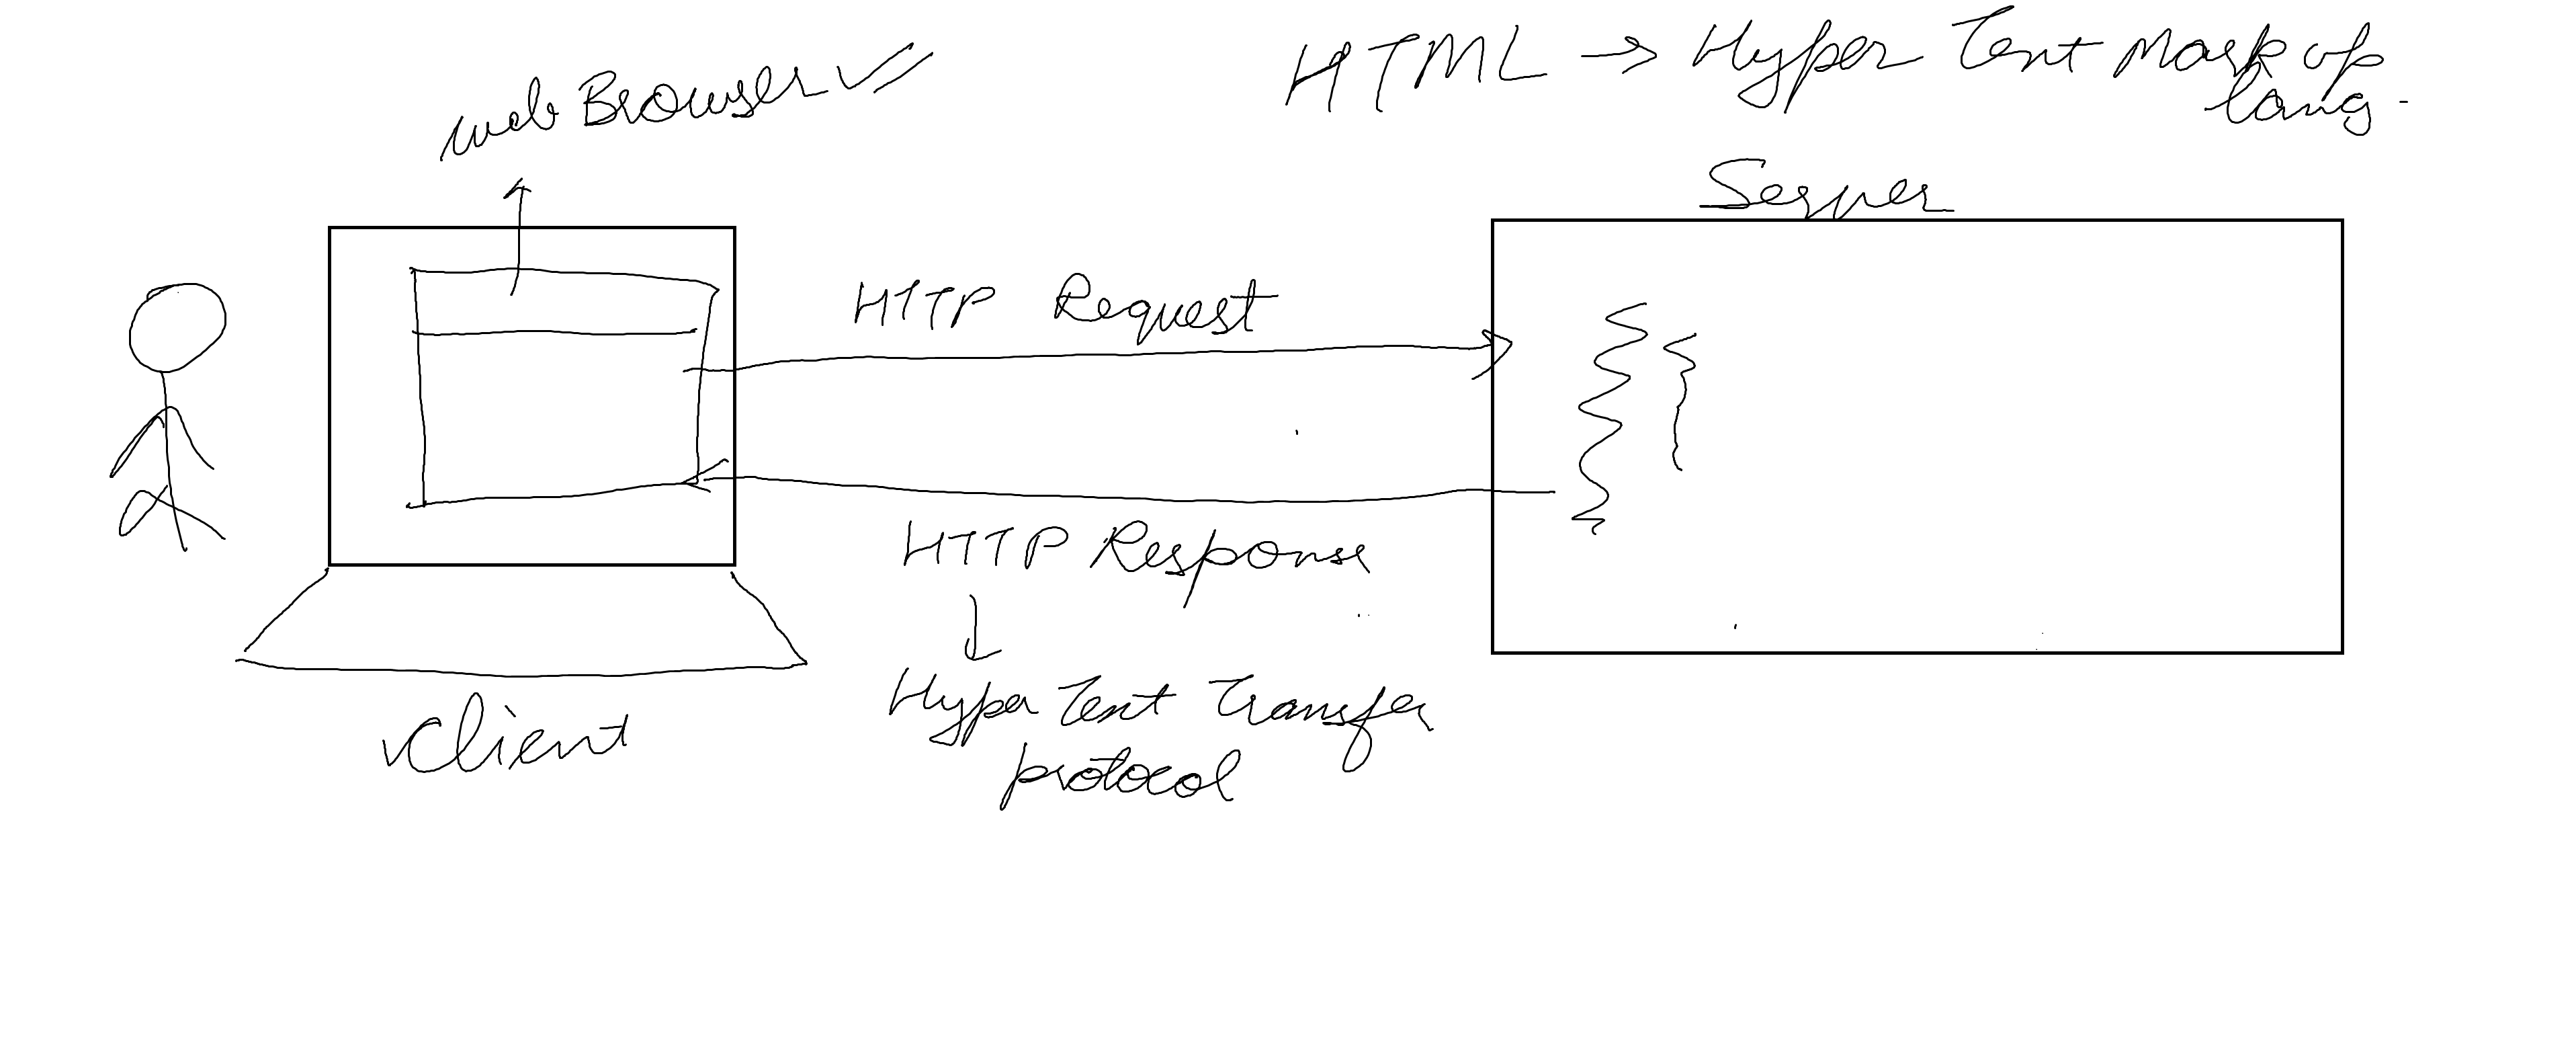 web Browser
HTML → Hyper Text Mark up
lang.
Server
HTTP Request
HTTP Response
Hyper Text Transfer
protocol
client